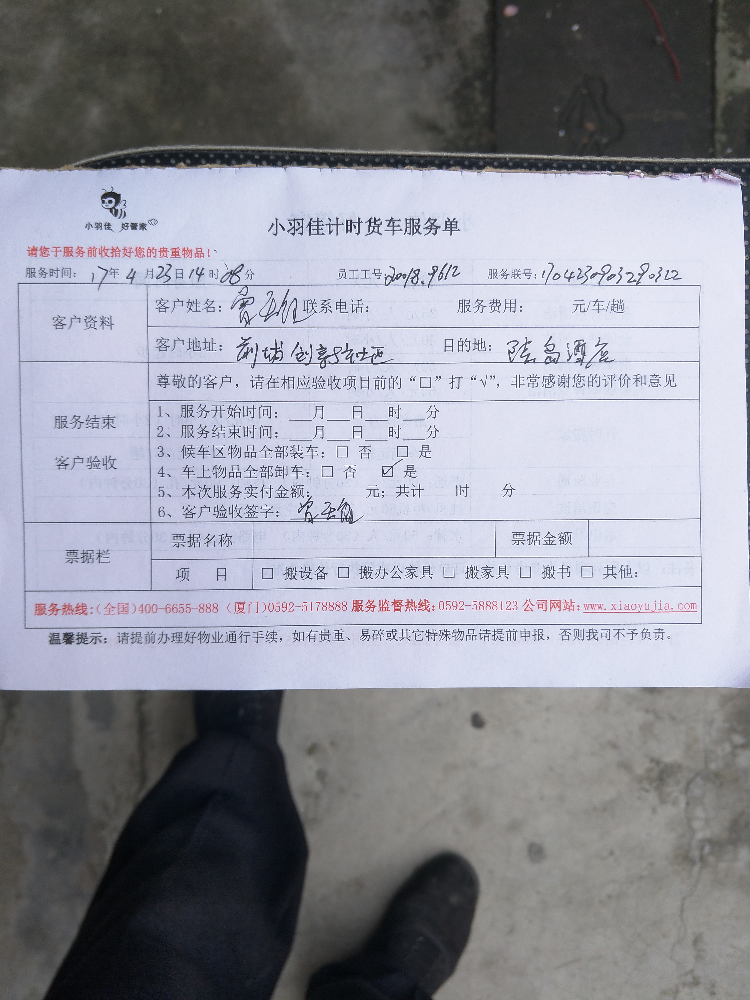 小羽佳 好管家
小羽佳计时货车服务单
请您于服务前收拾好您的贵重物品!
服务时间: 17年 4月 23日 14时 28分 员工工号: 服务联号: 170423090329
客户资料
客户姓名: 联系电话: 服务费用: 元/车/趟
客户地址: 前埔 社区 目的地: 酒店
服务结束
客户验收
尊敬的客户,请在相应验收项目前的“□”打“√”,非常感谢您的评价和意见
1、服务开始时间:___月___日___时___分
2、服务结束时间:___月___日___时___分
3、候车区物品全部装车: □ 否 □ 是
4、车上物品全部卸车: □ 否 ☑ 是
5、本次服务实付金额: 元; 共计 时 分
6、客户验收签字:
票据栏
票据名称 票据金额
项 目 □ 搬设备 □ 搬办公家具 □ 搬家具 □ 搬书 □ 其他:
服务热线:(全国)400-6655-888 (厦门)0592-5178888 服务监督热线:0592-5888123 公司网站:www.xiaoyujia.com
温馨提示: 请提前办理好物业通行手续,如有贵重、易碎或其它特殊物品请提前申报,否则我司不予负责。